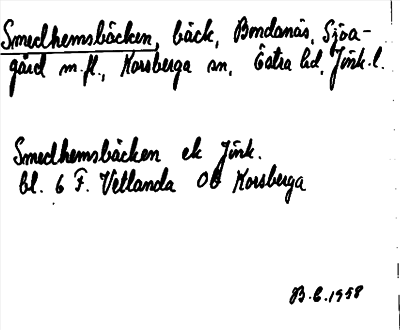 Smedhemsbäcken, bäck, Bondanäs, Sjöa-
gård m.fl., Korsberga sn, Östra hd, Jönk.l.
Smedhemsbäcken ek Jönk.
bl. 6 F. Vetlanda Ob Korsberga
B.E.1958